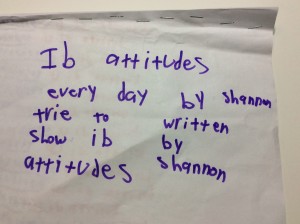 Ib attitudes
every day by shannon
trie to written
show ib by
attitudes shannon